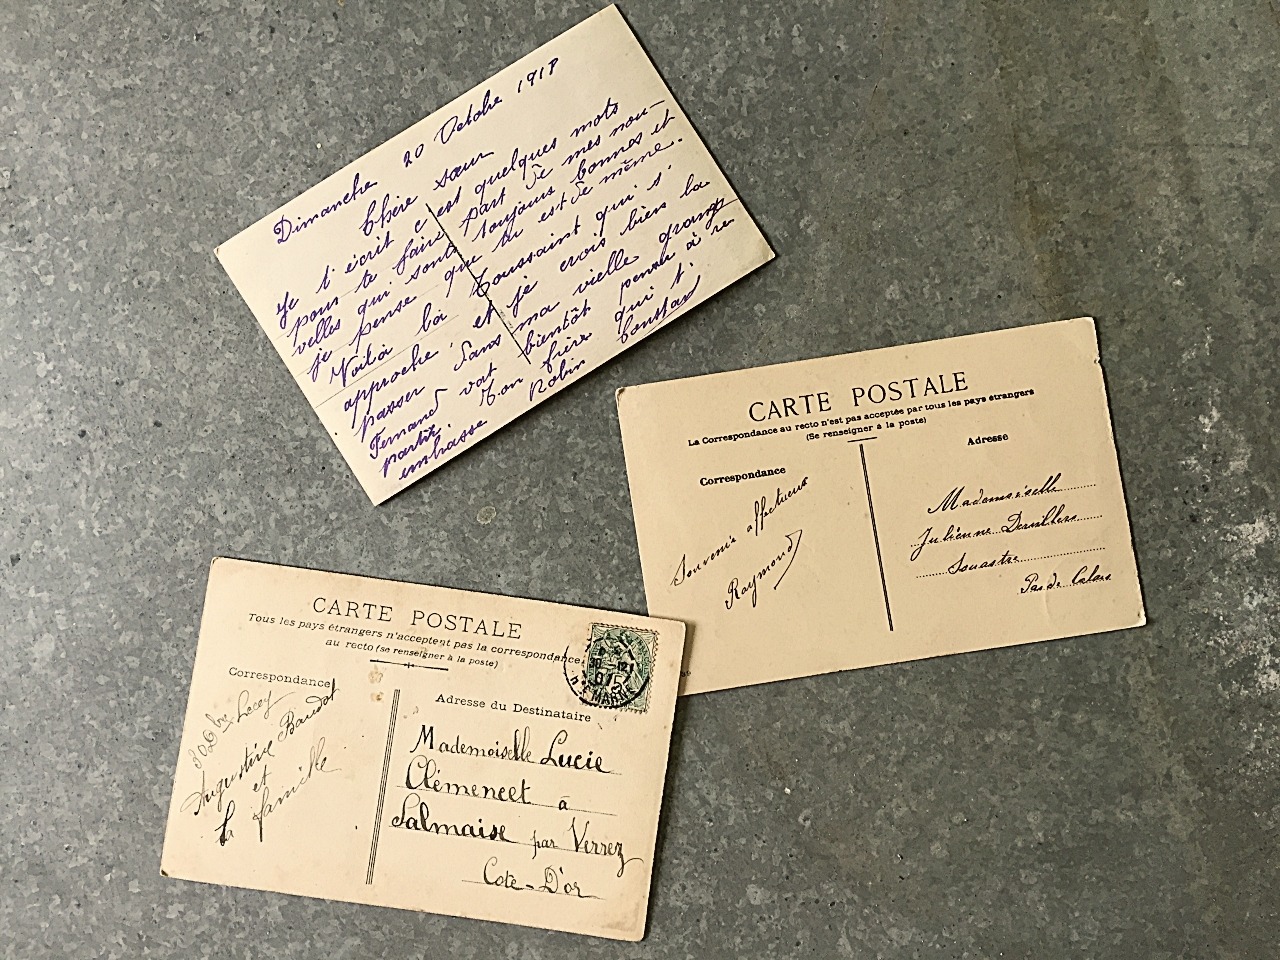 Dimanche 20 Octobre 1918
Chère sœur
Je t'écrit c'est quelques mots
pour te faire part de mes nou-
velles qui sont toujours bonnes et
je pense que tu est de même.
Voilà la Toussaint qui s'
approche et je crois bien la
passer dans ma vielle grange
Fernand vat bientôt penser à re
partir. Ton frère qui t'
embrasse Robin Constan
CARTE POSTALE
La Correspondance au recto n'est pas acceptée par tous les pays étrangers
(Se renseigner à la poste)
Correspondance
Adresse
Souvenir affectueux
Raymond
Mademoiselle
Julienne Dewillers
Souastre
Pas de Calais
CARTE POSTALE
Tous les pays étrangers n'acceptent pas la correspondance
au recto (se renseigner à la poste)
Correspondance
Adresse du Destinataire
30
Augustine Baudot
et
la famille
Mademoiselle Lucie
Clémencet à
Salmaise par Verrez
Cote-D'or
30 12
07
MARNE